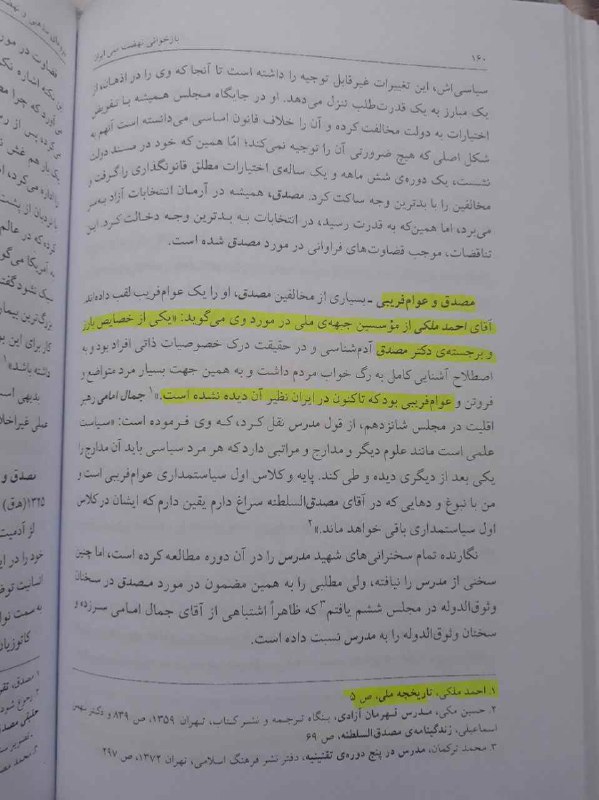 ۱۶۰
بازخوانی نهضت ملی ایران
سیاسی‌اش، این تغییرات غیرقابل توجیه را داشته است تا آنجا که وی را در اذهان، از
یک مبارز به یک قدرت‌طلب تنزل می‌دهد. او در جایگاه مجلس همیشه با تفویض
اختیارات به دولت مخالفت کرده و آن را خلاف قانون اساسی می‌دانسته است آنهم به
شکل اصلی که هیچ ضرورتی آن را توجیه نمی‌کند؛ امّا همین که خود در مسند دولت
نشست، یک دوره‌ی شش ماهه و یک ساله‌ی اختیارات مطلق قانونگذاری را گرفت و
مخالفین را با بدترین وجه ساکت کرد. مصدق، همیشه در آرمان انتخابات آزاد بسر
می‌برد، اما همین‌که به قدرت رسید، در انتخابات به بدترین وجه دخالت کرد. این
تناقضات، موجب قضاوت‌های فراوانی در مورد مصدق شده است.
مصدق و عوام‌فریبی ـ بسیاری از مخالفین مصدق، او را یک عوام‌فریب لقب داده‌اند.
آقای احمد ملکی از مؤسسین جبهه‌ی ملی در مورد وی می‌گوید: «یکی از خصایص بارز
و برجسته‌ی دکتر مصدق آدم‌شناسی و در حقیقت درک خصوصیات ذاتی افراد بود و به
اصطلاح آشنایی کامل به رگ خواب مردم داشت و به همین جهت بسیار مرد متواضع و
فروتن و عوام‌فریبی بود که تاکنون در ایران نظیر آن دیده نشده است.»۱ جمال امامی رهبر
اقلیت در مجلس شانزدهم، از قول مدرس نقل کرد، کـه وی فرموده است: «سیاست
علمی است مانند علوم دیگر و مدارج و مراتبی دارد که هر مرد سیاسی باید آن مدارج را
یکی بعد از دیگری دیده و طی کند. پایه و کلاس اول سیاستمداری عوام‌فریبی است و
من با نبوغ و دهایی که در آقای مصدق‌السلطنه سراغ دارم یقین دارم که ایشان در کلاس
اول سیاستمداری باقی خواهد ماند.»۲
نگارنده تمام سخنرانی‌های شهید مدرس را در آن دوره مطالعه کرده است، اما چنین
سخنی از مدرس را نیافته، ولی مطلبی را به همین مضمون در مورد مصدق در سخنان
وثوق‌الدوله در مجلس ششم یافتم۳ که ظاهراً اشتباهی از آقای جمال امامی سرزده و
سخنان وثوق‌الدوله را به مدرس نسبت داده است.
۱. احمد ملکی، تاریخچه ملی، ص ۵
۲. حسین مکی، مدرس قهرمان آزادی، بنگاه ترجمه و نشر کتاب، تهران ۱۳۵۹، ص ۸۳۹ و دکتر بهمن
اسماعیلی، زندگینامه‌ی مصدق‌السلطنه، ص ۶۹
۳. محمد ترکمان، مدرس در پنج دوره‌ی تقنینیه، دفتر نشر فرهنگ اسلامی، تهران ۱۳۷۲، ص ۲۹۷